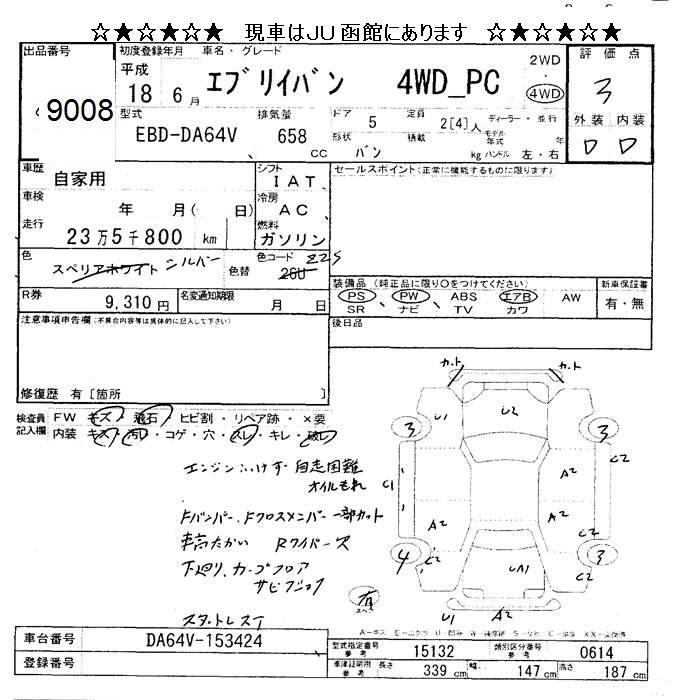 ☆★☆★☆★ 現車はJU函館にあります ☆★☆★☆★
出品番号
初度登録年月 車名・グレード
平成 18 6 月
エブリイバン 4WD_PC
2WD・4WD
評価点
3
外装 内装
D D
9008
型式 排気量 ドア 5 定員 2[4]人 ディーラー・並行
EBD-DA64V 658 cc
形状 バン 積載 kg
モデル年式 年
ハンドル 左・右
車歴 自家用
シフト IAT
セールスポイント(正常に機能するものに限ります)
車検 年 月( 日)
冷房 AC
走行 23万5千800 km
燃料 ガソリン
色 スペリアホワイト シルバー 色替
色コード 26U Z2S
装備品(純正品に限り○をつけてください)
新車保証書
有・無
PS PW ABS エアB AW
SR ナビ TV カワ
R券 9,310円
名変通知期限 月 日
注意事項申告欄(不具合内容等は具体的に記入して下さい)
後日品
修復歴 有 [箇所 ]
検査員記入欄
FW キズ・飛石・ヒビ割・リペア跡・×要
内装 キズ・汚レ・コゲ・穴・スレ・キレ・破レ
エンジンふけず 自走困難
オイルもれ
Fバンパー、Fクロスメンバー 一部カット
車高たかい Rワイパーズ
下廻り、カーゴフロア
サビ
スタットレス
カット カット
U1 U2
3 3
C2
A2
C1
A2 A2
4 3
C2 C2 C2
UA1
有
スペア
U1 A2
車台番号 DA64V-153424
登録番号
型式指定番号 参考 15132
類別区分番号 参考 0614
車庫証明用 参考 長さ 339 cm 幅 147 cm 高さ 187 cm